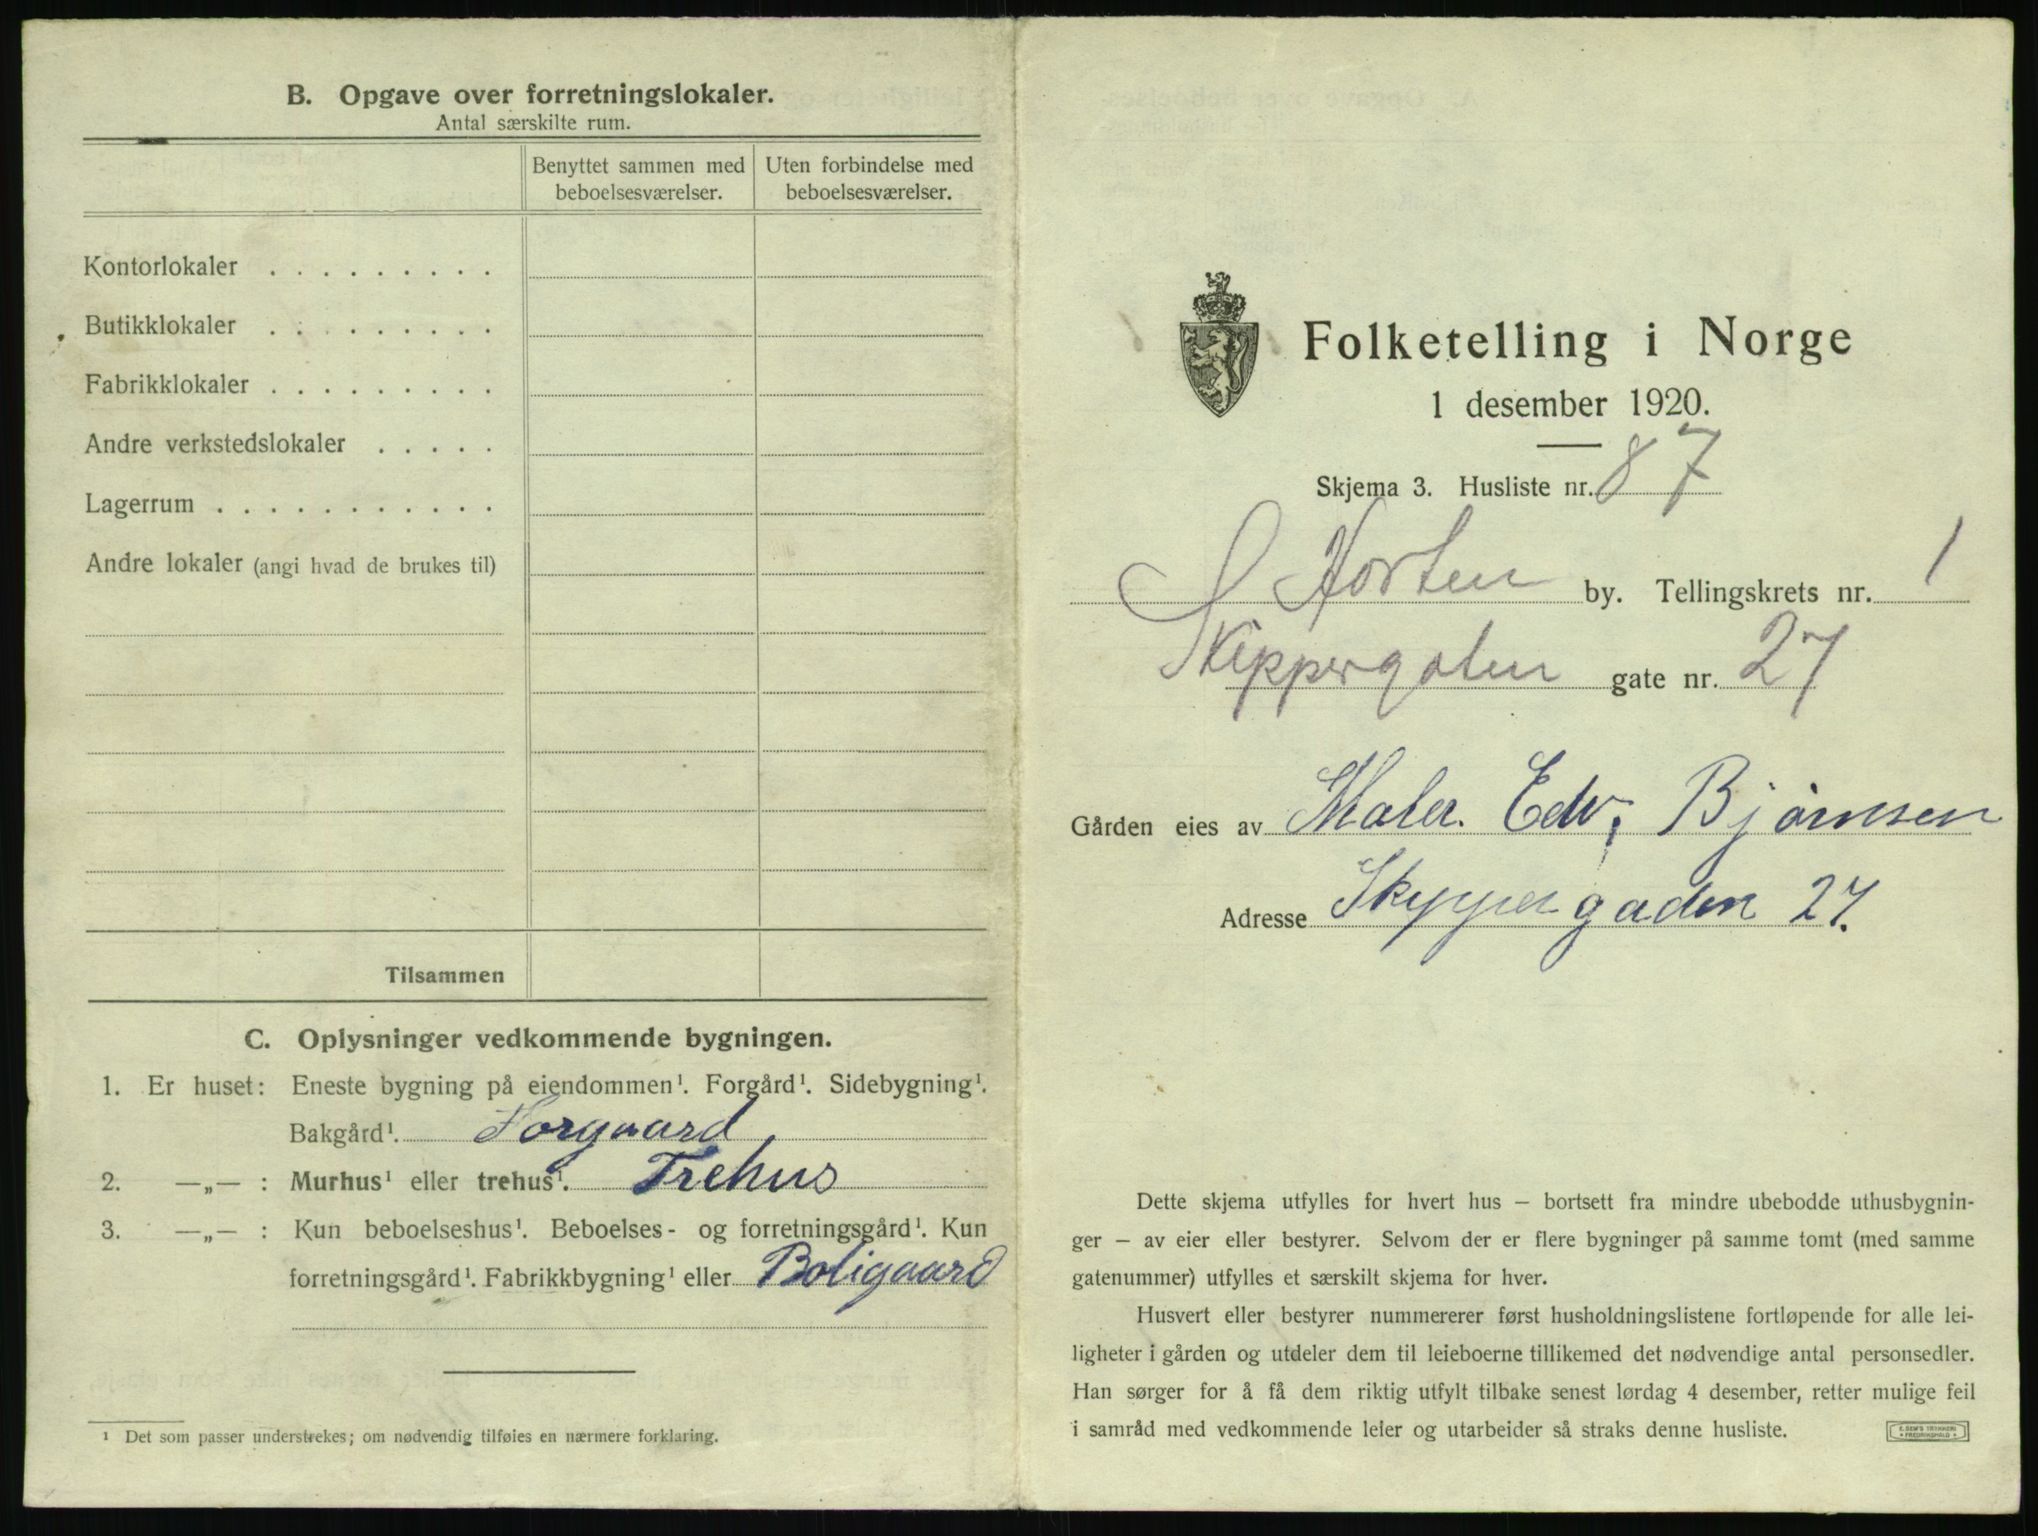 B. Opgave over forretningslokaler.
Antal særskilte rum.
Benyttet sammen med beboelsesværelser.
Uten forbindelse med beboelsesværelser.
Kontorlokaler . . . . . . . . .
Butikklokaler . . . . . . . . .
Fabrikklokaler . . . . . . . . .
Andre verkstedslokaler . . . . .
Lagerrum . . . . . . . . . . .
Andre lokaler (angi hvad de brukes til)
Tilsammen
C. Oplysninger vedkommende bygningen.
1. Er huset: Eneste bygning på eiendommen¹. Forgård¹. Sidebygning¹.
Bakgård¹. Forgaard
2. —„— : Murhus¹ eller trehus¹. Trehus
3. —„— : Kun beboelseshus¹. Beboelses- og forretningsgård¹. Kun
forretningsgård¹. Fabrikkbygning¹ eller Boligaard
¹ Det som passer understrekes; om nødvendig tilføies en nærmere forklaring.
Folketelling i Norge
1 desember 1920.
Skjema 3. Husliste nr. 87
Horten by. Tellingskrets nr. 1
Skippergaten gate nr. 27
Gården eies av Maler. Edv. Bjørnsen
Adresse Skyppergaden 27.
Dette skjema utfylles for hvert hus – bortsett fra mindre ubebodde uthusbygnin-
ger – av eier eller bestyrer. Selvom der er flere bygninger på samme tomt (med samme
gatenummer) utfylles et særskilt skjema for hver.
Husvert eller bestyrer nummererer først husholdningslistene fortløpende for alle lei-
ligheter i gården og utdeler dem til leieboerne tillikemed det nødvendige antal personsedler.
Han sørger for å få dem riktig utfylt tilbake senest lørdag 4 desember, retter mulige feil
i samråd med vedkommende leier og utarbeider så straks denne husliste.
E. SEM'S TRYKKERI
FREDRIKSHALD